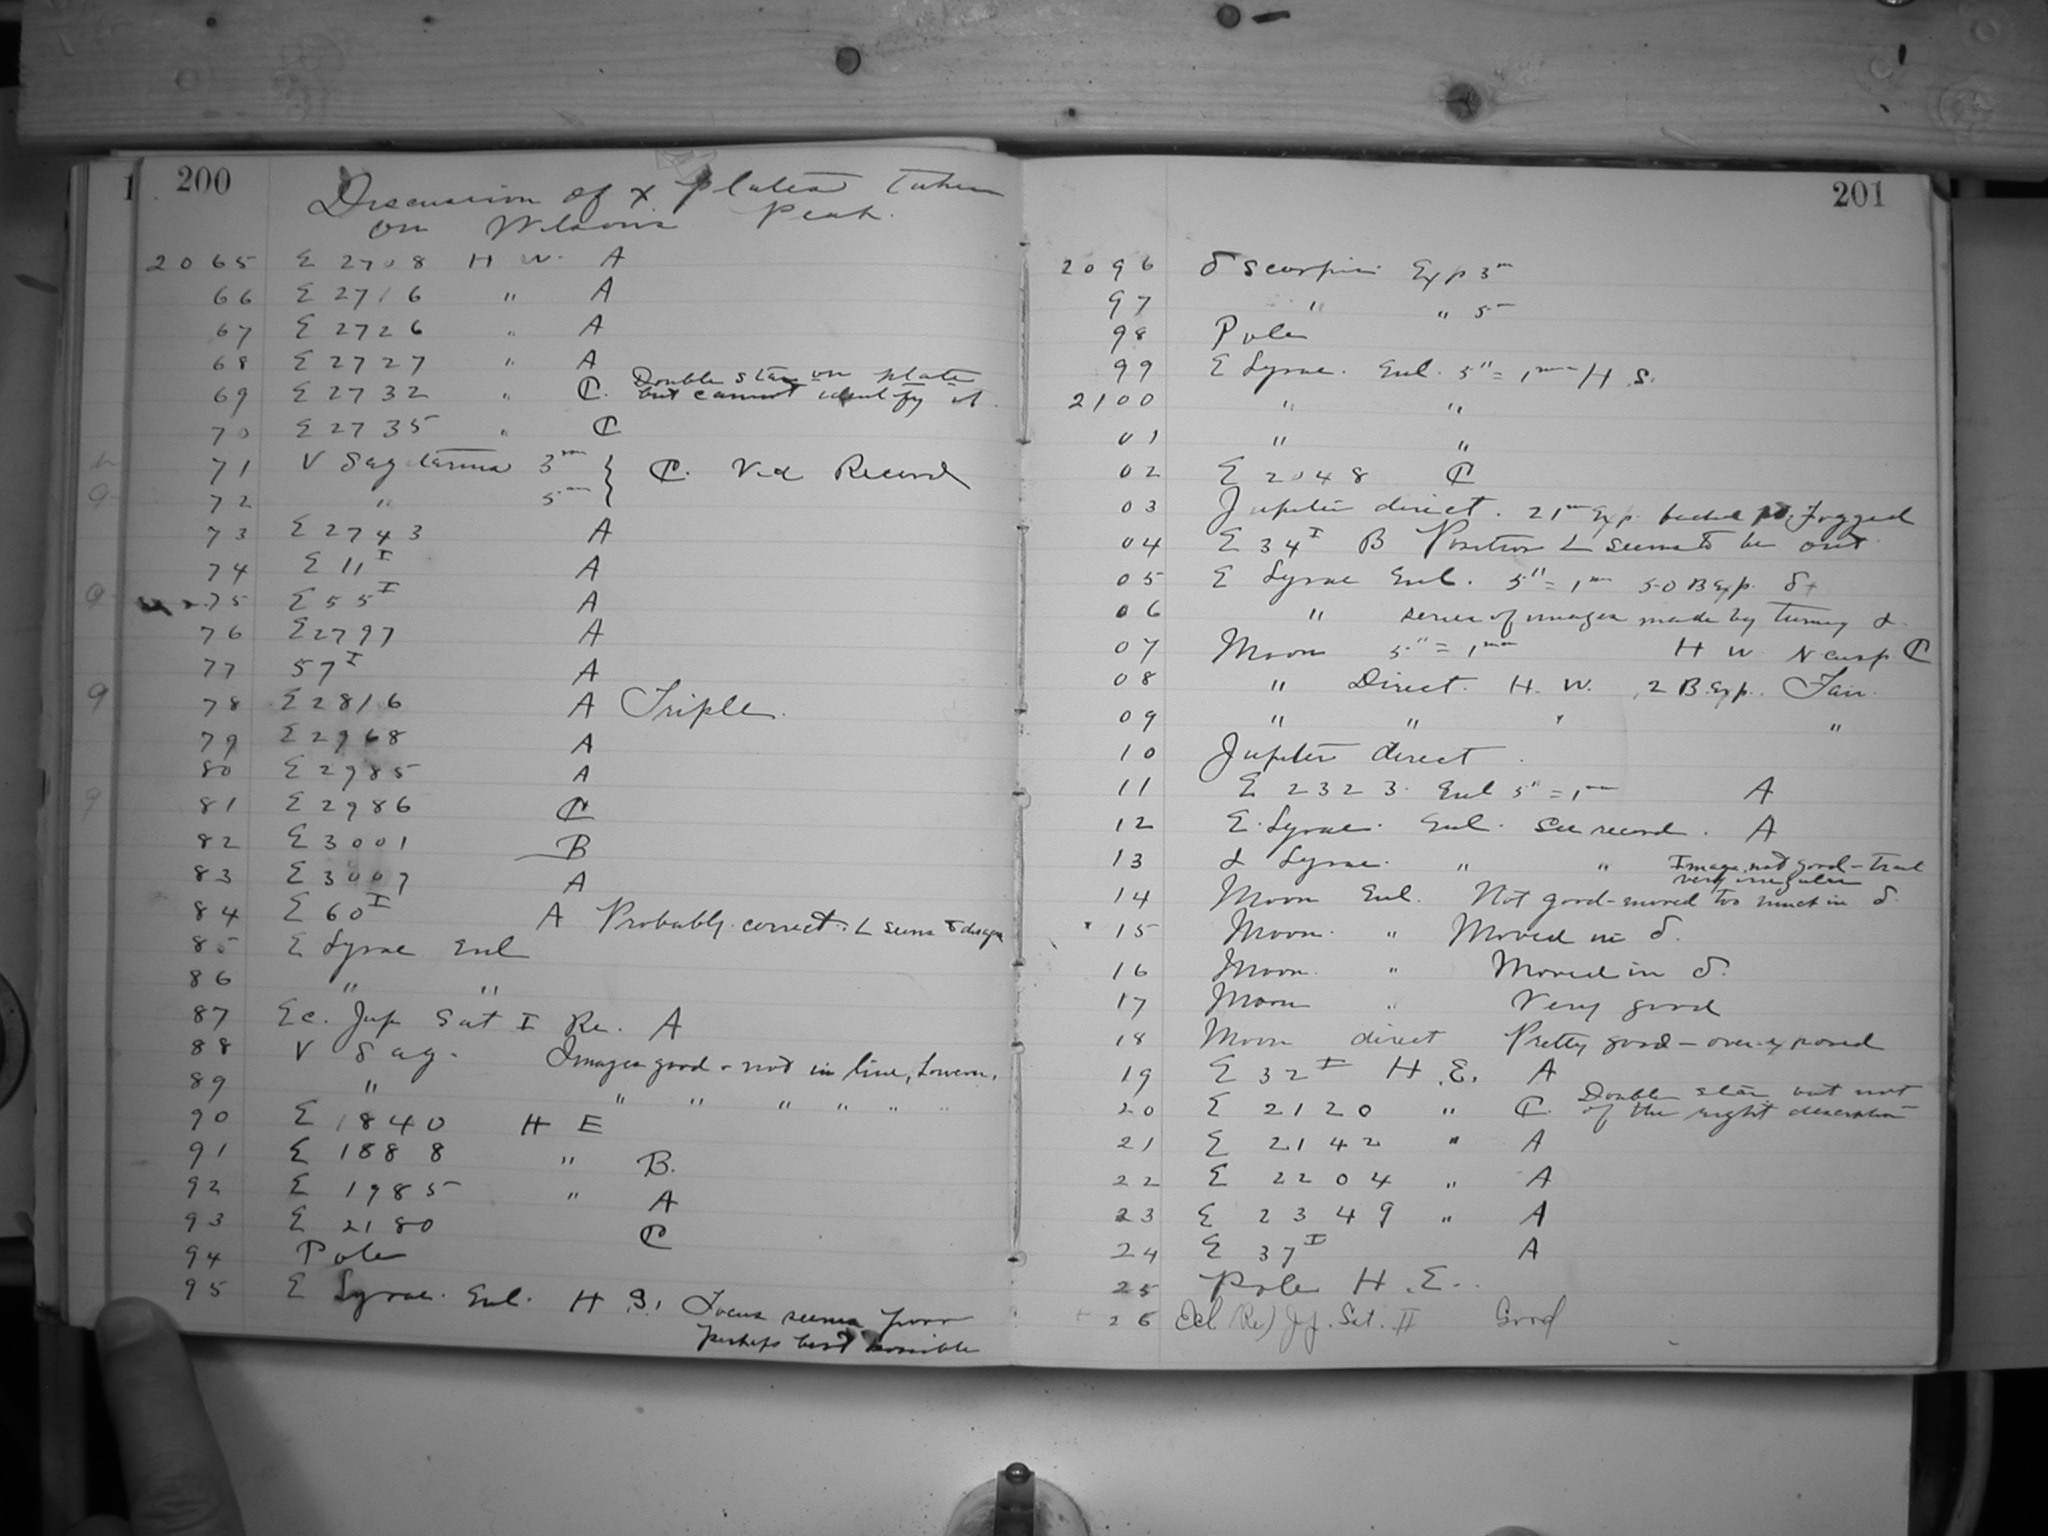 200
Discussion of X plates taken
on Wilson's Peak.
2065 Σ 2708 H W. A
66 Σ 2716 " A
67 Σ 2726 " A
68 Σ 2727 " A
69 Σ 2732 " C. Double star on plate
but cannot identify it
70 Σ 2735 " C
71 V Sagittarius 3m } C. Vid Record
72 " 5m }
73 Σ 2743 A
74 Σ 11 I A
75 Σ 55 I A
76 Σ 2797 A
77 57 I A
78 Σ 2816 A Triple.
79 Σ 2968 A
80 Σ 2985 A
81 Σ 2986 C
82 Σ 3001 B
83 Σ 3007 A
84 Σ 60 I A Probably correct. L seems to disagree
85 Ε Lyrae Enl
86 " "
87 Ec. Jup Sat I Re. A
88 V Sag. Images good - not in line,
89 " " " " " " "
90 Σ 1840 H E
91 Σ 1888 " B.
92 Σ 1985 " A
93 Σ 2180 C
94 Pole
95 Ε Lyrae. Enl. H S. Focus seems poor
perhaps best possible
201
2096 δ Scorpii Exp 3m
97 " " 5m
98 Pole
99 Ε Lyrae. Enl. 5" = 1mm H.S.
2100 " "
01 " "
02 Σ 2048 C
03 Jupiter direct. 21m Exp. Fogged
04 Σ 34 I B Position L seems to be out
05 Ε Lyrae Enl. 5" = 1mm 50 B Exp.
06 " series of images made by turning
07 Moon 5" = 1mm H W N cusp. C
08 " Direct. H. W. 2 B. Exp. Fair.
09 " " " "
10 Jupiter direct
11 Σ 2323. Enl 5" = 1mm A
12 Ε. Lyrae. Enl. See record. A
13 α Lyrae. " " Image not good - trail
very irregular
14 Moon Enl. Not good - moved too much in δ.
15 Moon. " Moved in δ.
16 Moon. " Moved in δ.
17 Moon " Very good
18 Moon direct Pretty good - over exposed
19 Σ 32 I H.E. A
20 Σ 2120 " C. Double star but not
of the right description
21 Σ 2142 " A
22 Σ 2204 " A
23 Σ 2349 " A
24 Σ 37 I A
25 Pole H.E..
26 Ecl (Re) Jup. Sat. II Good